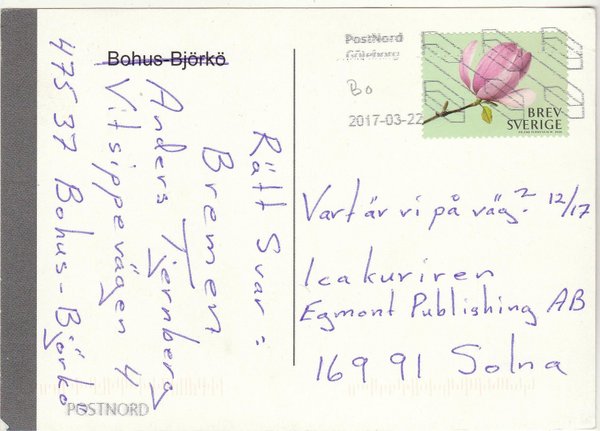 Bohus-Björkö
Rätt Svar:
Bremen
Anders Tjernberg
Vitsippevägen 4
475 37 Bohus-Björkö
PostNord
Göteborg
Bo
2017-03-22
BREV
SVERIGE
Vart är vi på väg? 12/17
Icakuriren
Egmont Publishing AB
169 91 Solna
POSTNORD